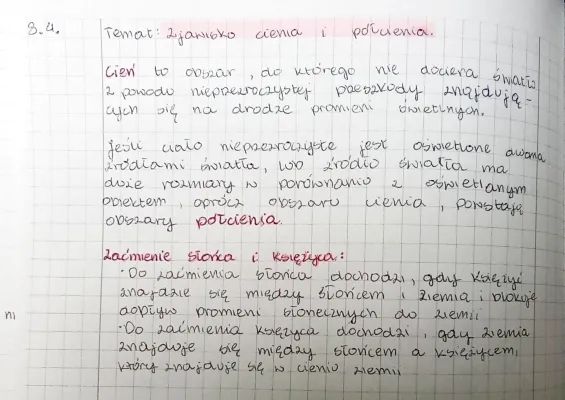 3.4. Temat: Zjawisko cienia i półcienia.
Cień to obszar, do którego nie dociera światło
z powodu nieprzezroczystej przeszkody znajdują-
cych się na drodze promieni świetlnych.
Jeśli ciało nieprzezroczyste jest oświetlone dwoma
źródłami światła, lub źródło światła ma
duże rozmiary w porównaniu z oświetlanym
obiektem, oprócz obszaru cienia, powstają
obszary półcienia.
Zaćmienie słońca i księżyca:
· Do zaćmienia słońca dochodzi, gdy księżyc
znajdzie się między słońcem i ziemia i blokuje
dopływ promieni słonecznych do ziemi
· Do zaćmienia księżyca dochodzi, gdy ziemia
znajduje się między słońcem a księżycem,
który znajduje się w cieniu ziemi